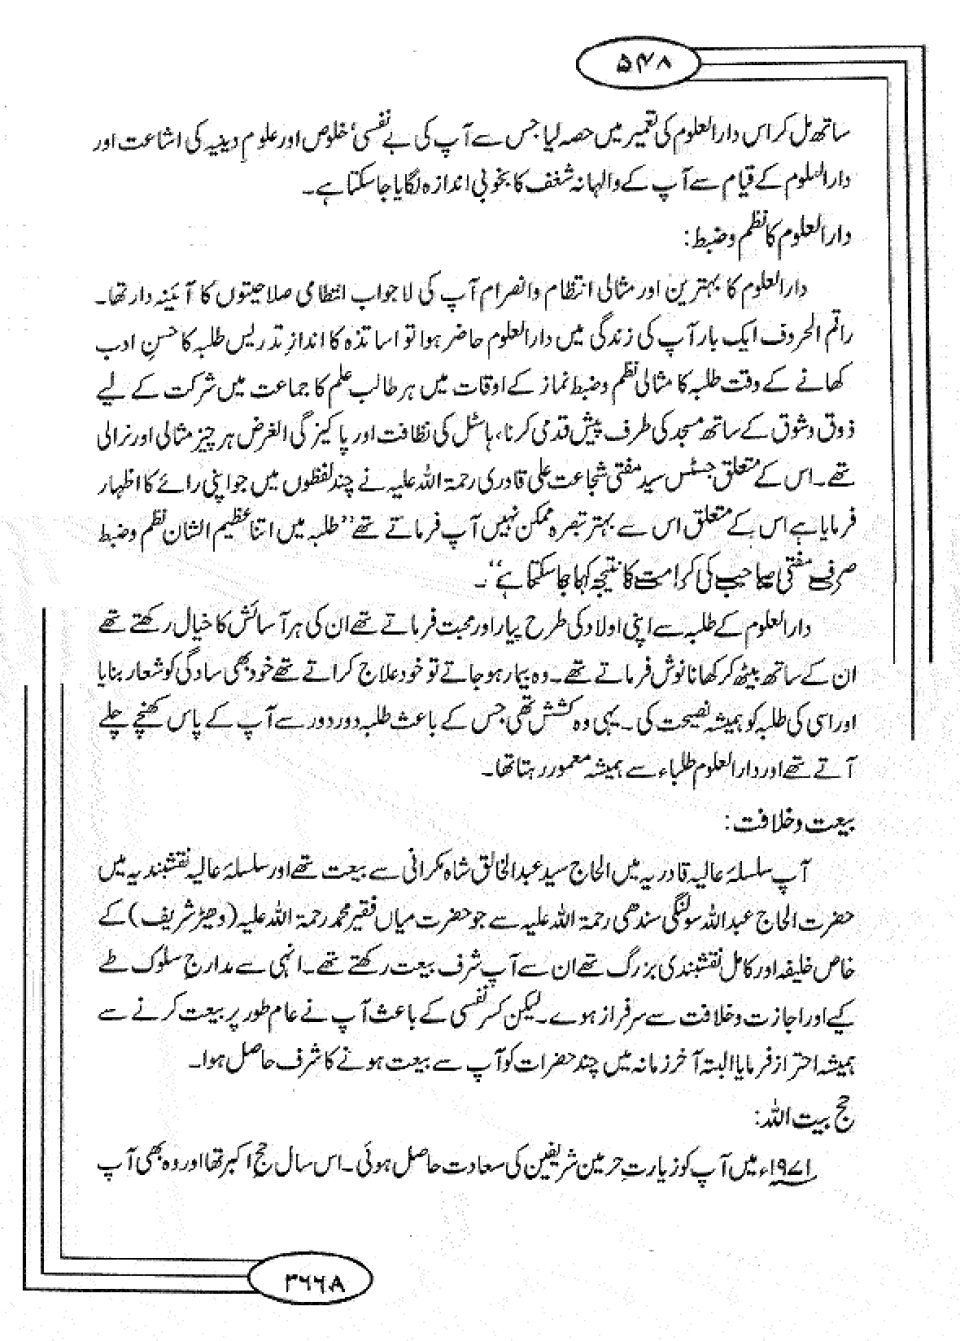 ۵۴۸
ساتھ مل کر اس دارالعلوم کی تعمیر میں حصہ لیا جس سے آپ کی بے نفسی، خلوص اور علومِ دینیہ کی اشاعت اور
دارالعلوم کے قیام سے آپ کے والہانہ شغف کا بخوبی اندازہ لگایا جا سکتا ہے۔
دارالعلوم کا نظم و ضبط:
دارالعلوم کا بہترین اور مثالی انتظام و انصرام آپ کی لاجواب انتظامی صلاحیتوں کا آئینہ دار تھا۔
راقم الحروف ایک بار آپ کی زندگی میں دارالعلوم حاضر ہوا تو اساتذہ کا اندازِ تدریس طلبہ کا حسنِ ادب
کھانے کے وقت طلبہ کا مثالی نظم و ضبط نماز کے اوقات میں ہر طالب علم کا جماعت میں شرکت کے لیے
ذوق و شوق کے ساتھ مسجد کی طرف پیش قدمی کرنا، ہاسٹل کی نظافت اور پاکیزگی الغرض ہر چیز مثالی اور نرالی
تھے۔ اس کے متعلق جسٹس سید مفتی شجاعت علی قادری رحمۃ اللہ علیہ نے چند لفظوں میں جو اپنی رائے کا اظہار
فرمایا ہے اس کے متعلق اس سے بہتر تبصرہ ممکن نہیں آپ فرماتے تھے ’’طلبہ میں اتنا عظیم الشان نظم و ضبط
صرف مفتی صاحب کی کرامت کا نتیجہ کہا جا سکتا ہے‘‘۔
دارالعلوم کے طلبہ سے اپنی اولاد کی طرح پیار اور محبت فرماتے تھے ان کی ہر آسائش کا خیال رکھتے تھے
ان کے ساتھ بیٹھ کر کھانا نوش فرماتے تھے۔ وہ بیمار ہو جاتے تو خود علاج کراتے تھے خود بھی سادگی کو شعار بنایا
اور اسی کی طلبہ کو ہمیشہ نصیحت کی۔ یہی وہ کشش تھی جس کے باعث طلبہ دور دور سے آپ کے پاس کھنچے چلے
آتے تھے اور دارالعلوم طلباء سے ہمیشہ معمور رہتا تھا۔
بیعت و خلافت:
آپ سلسلۂ عالیہ قادریہ میں الحاج سید عبدالخالق شاہ مکرانی سے بیعت تھے اور سلسلۂ عالیہ نقشبندیہ میں
حضرت الحاج عبداللہ سولنگی سندھی رحمۃ اللہ علیہ سے جو حضرت میاں فقیر محمد رحمۃ اللہ علیہ (دھیڑ شریف) کے
خاص خلیفہ اور کامل نقشبندی بزرگ تھے ان سے آپ شرف بیعت رکھتے تھے۔ انہی سے مدارجِ سلوک طے
کیے اور اجازت و خلافت سے سرفراز ہوے۔ لیکن کسر نفسی کے باعث آپ نے عام طور پر بیعت کرنے سے
ہمیشہ احتراز فرمایا البتہ آخر زمانہ میں چند حضرات کو آپ سے بیعت ہونے کا شرف حاصل ہوا۔
حج بیت اللہ:
۱۹۷۱ء میں آپ کو زیارتِ حرمین شریفین کی سعادت حاصل ہوئی۔ اس سال حج اکبر تھا اور وہ بھی آپ
۳۶۶۸